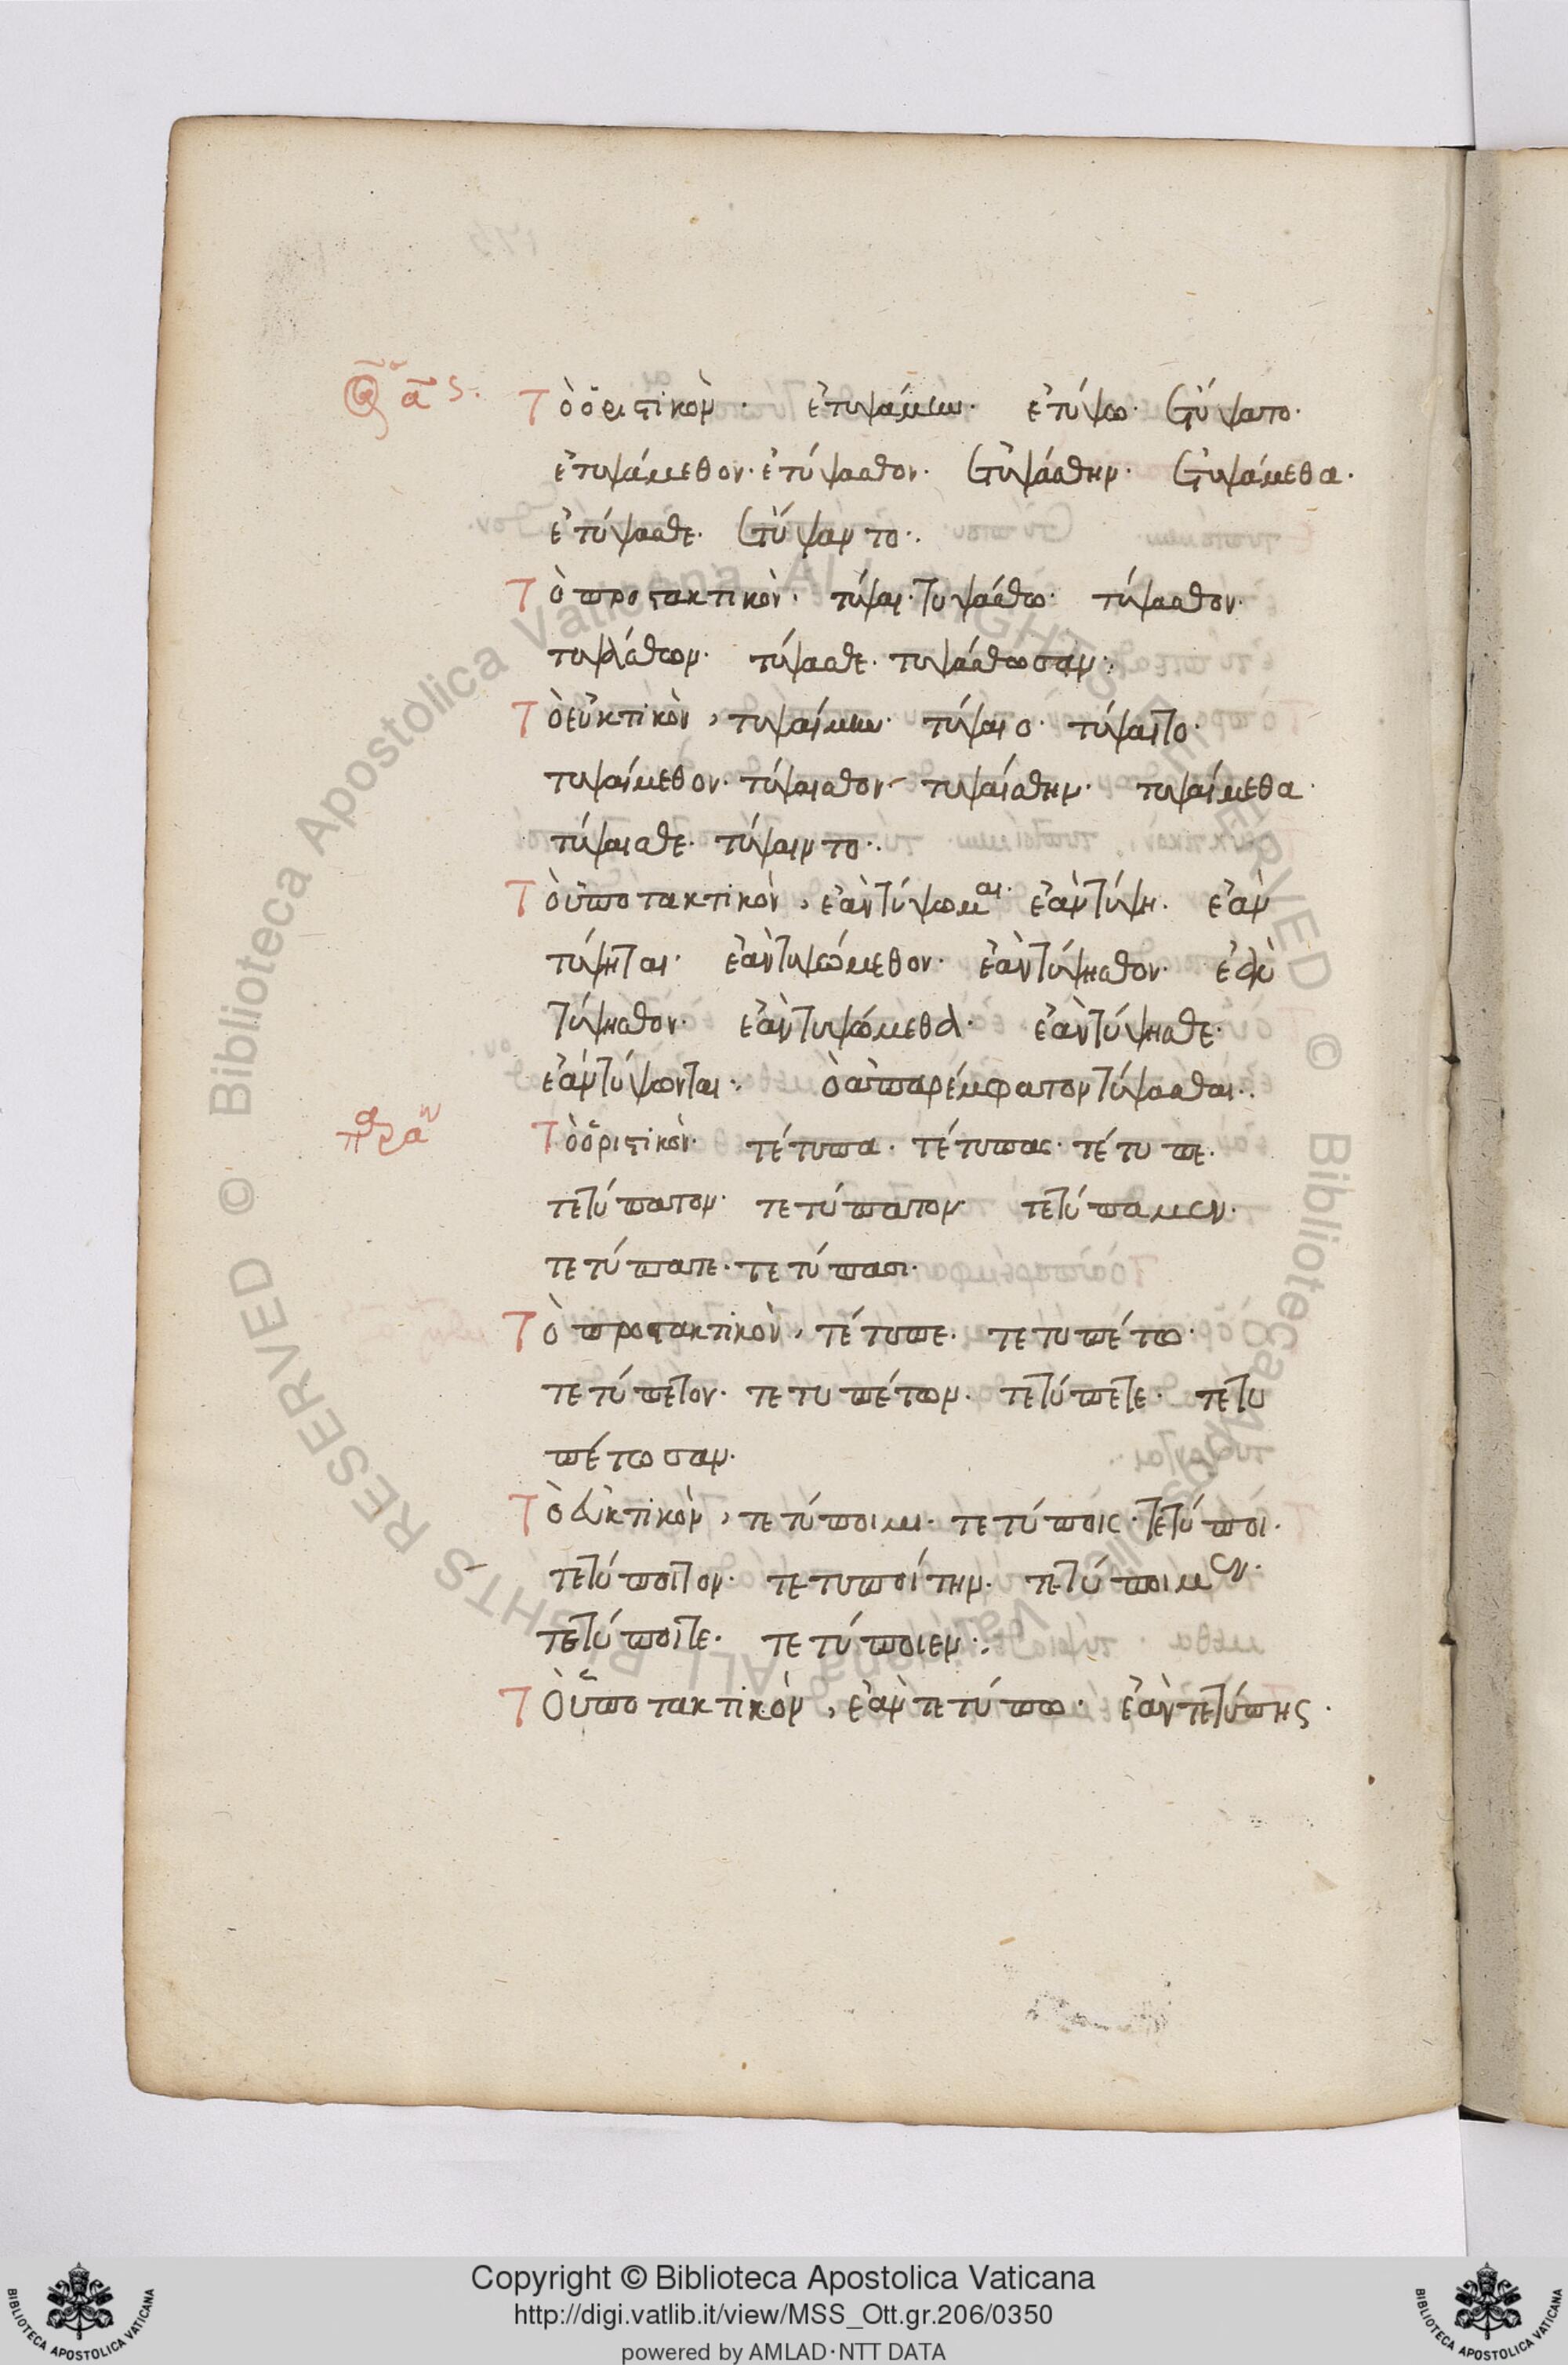 Τὸ ὁριστικὸν· ἐτυψάμην· ἐτύψω· ἐτύψατο·
ἐτυψάμεθον· ἐτύψασθον· ἐτυψάσθην· ἐτυψάμεθα·
ἐτύψασθε· ἐτύψαντο:·
Τὸ προστακτικὸν, τύψαι· τυψάσθω· τύψασθον·
τυψάσθων· τύψασθε· τυψάσθωσαν:·
Τὸ εὐκτικὸν, τυψαίμην· τύψαιο· τύψαιτο·
τυψαίμεθον· τύψαισθον· τυψαίσθην· τυψαίμεθα·
τύψαισθε· τύψαιντο:·
Τὸ ὑποτακτικὸν, ἐὰν τύψωμαι· ἐὰν τύψη· ἐὰν
τύψηται· ἐὰν τυψώμεθον· ἐὰν τύψησθον· ἐὰν
τύψησθον· ἐὰν τυψώμεθα· ἐὰν τύψησθε·
ἐὰν τύψωνται:· ὸ ἀπαρέμφατον τύψασθαι:·
Τὸ ὁριστικὸν· τέτυπα· τέτυπας· τέτυπε·
τετύπατον· τετύπατον· τετύπαμεν·
τετύπατε· τετύπασι·
Τὸ προστακτικὸν, τέτυπε· τετυπέτω·
τετύπετον· τετυπέτων· τετύπετε· τετυ
πέτωσαν·
Τὸ εὐκτικὸν, τετύποιμι· τετύποις· τετύποι·
τετύποιτον· τετυποίτην· τετύποιμεν·
τετύποιτε· τετύποιεν:·
Τὸ ὑποτακτικὸν, ἐὰν τετύπω· ἐὰν τετύπης·
Copyright © Biblioteca Apostolica Vaticana
http://digi.vatlib.it/view/MSS_Ott.gr.206/0350
powered by AMLAD·NTT DATA